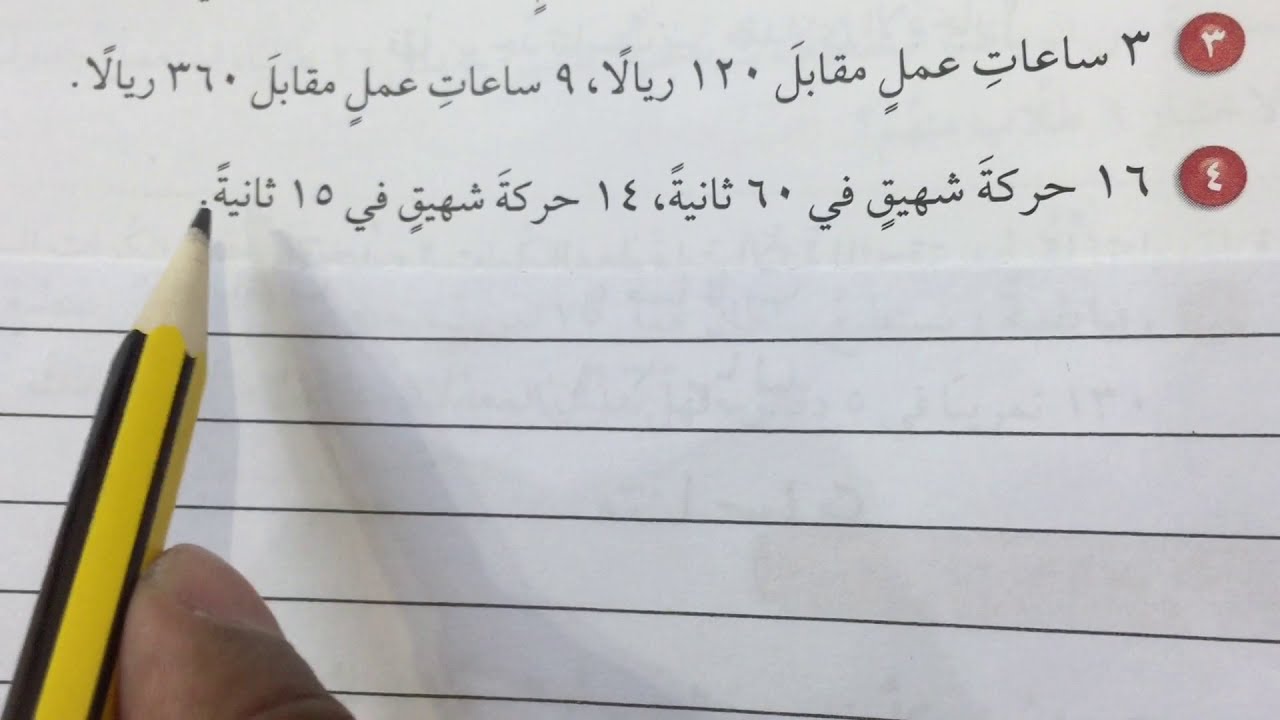 ٣ ٣ ساعاتِ عملٍ مقابلَ ١٢٠ ريالًا، ٩ ساعاتِ عملٍ مقابلَ ٣٦٠ ريالًا.
٤ ١٦ حركةَ شهيقٍ في ٦٠ ثانيةً، ١٤ حركةَ شهيقٍ في ١٥ ثانيةً.